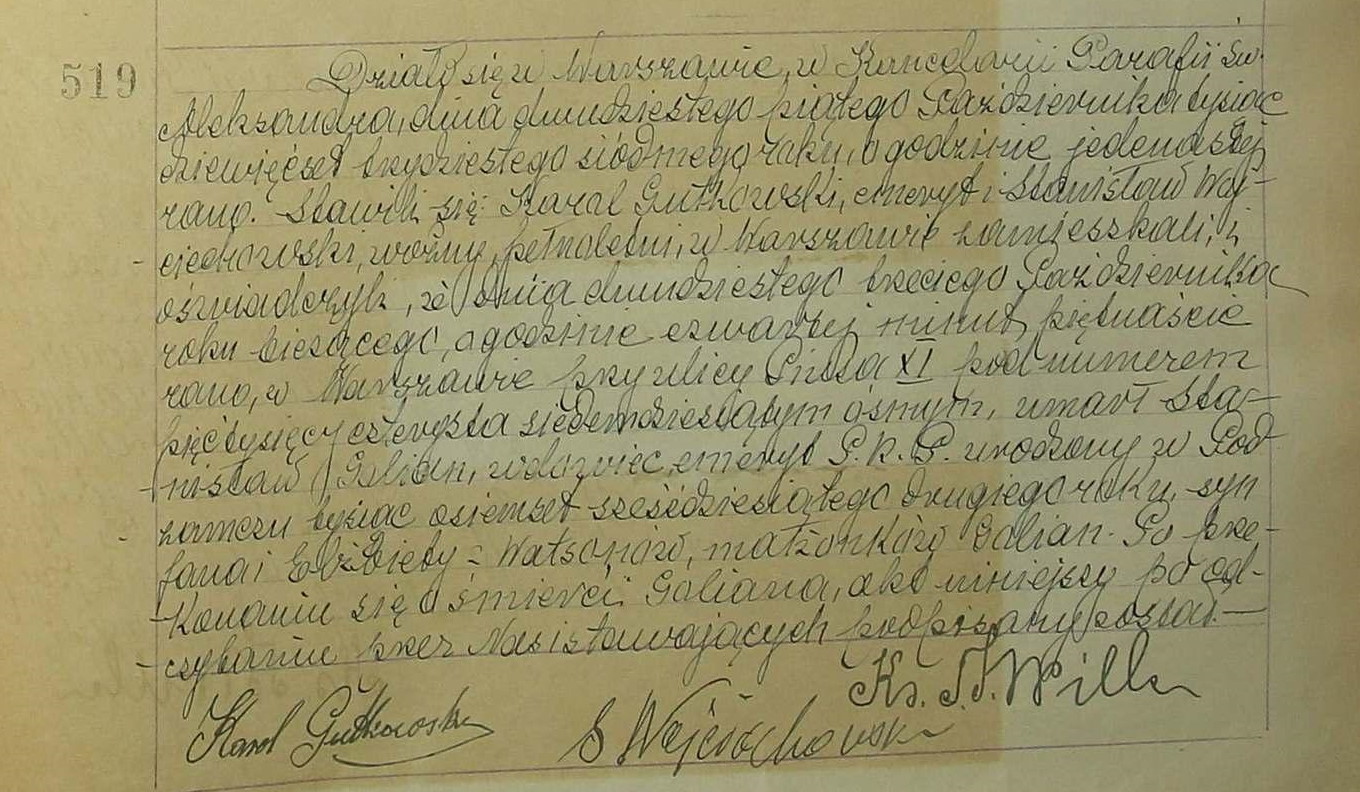 519
Działo się w Warszawie, w Kancelarii Parafii św.
Aleksandra, dnia dwudziestego piątego Października tysiąc
dziewięćset trzydziestego siódmego roku, o godzinie jedenastej
rano. Stawili się: Karol Gutkowski, emeryt i Stanisław Woj-
ciechowski, woźny, pełnoletni, w Warszawie zamieszkali, i
oświadczyli, że dnia dwudziestego trzeciego Października
roku bieżącego, o godzinie czwartej minut piętnaście
rano, w Warszawie przy ulicy Piusa XI pod numerem
pięć tysięcy czterysta siedemdziesiątym ósmym, umarł Sta-
nisław Galian, wdowiec, emeryt P.K.P. urodzony w Pod-
zamczu tysiąc osiemset sześćdziesiątego drugiego roku, syn
Jana i Elżbiety z Watsonów, małżonków Galian. Po prze-
konaniu się o śmierci Galiana, akt niniejszy po od-
czytaniu przez Nas i stawających podpisany został.—
Ks. Will
Karol Gutkowski
S Wojciechowski